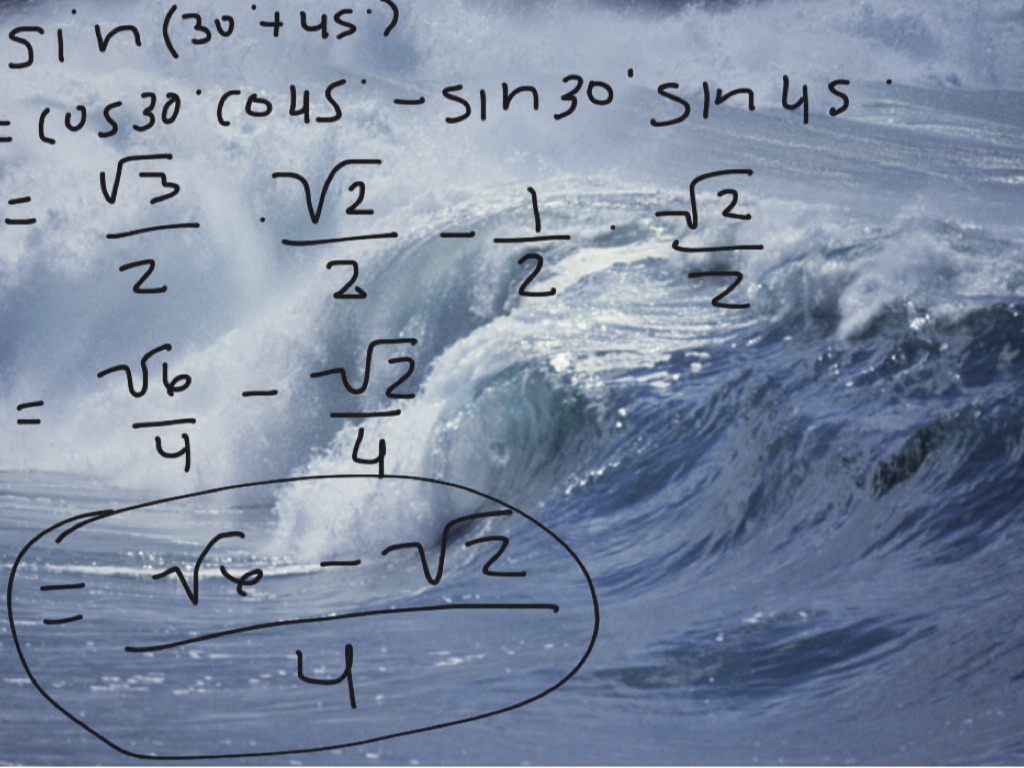 sin(30°+45°)
= cos30° co45° - sin30° sin45°
= √3/2 · √2/2 - 1/2 · √2/2
= √6/4 - √2/4
= √6 - √2 / 4